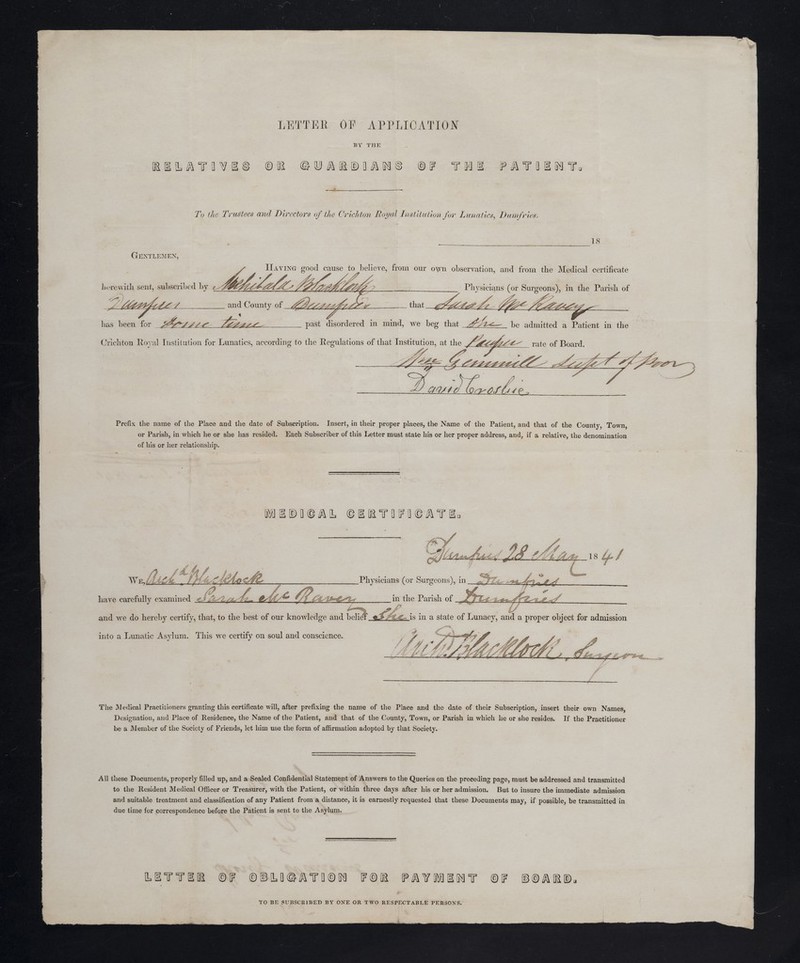 LETTER OF APPLICATION
BY THE
RELATIVES OR GUARDIANS OF THE PATIENT.
To the Trustees and Directors of the Crichton Royal Institution for Lunatics, Dumfries.
18
GENTLEMEN,
HAVING good cause to believe, from our own observation, and from the Medical certificate
herewith sent, subscribed by Archibald Blacklock Physicians (or Surgeons), in the Parish of
Dumfries and County of Dumfries that Sarah Mc Ravey
has been for Some time past disordered in mind, we beg that She be admitted a Patient in the
Crichton Royal Institution for Lunatics, according to the Regulations of that Institution, at the Pauper rate of Board.
Wm Gemmill Supt of Poor
David Crosbie
Prefix the name of the Place and the date of Subscription. Insert, in their proper places, the Name of the Patient, and that of the County, Town,
or Parish, in which he or she has resided. Each Subscriber of this Letter must state his or her proper address, and, if a relative, the denomination
of his or her relationship.
MEDICAL CERTIFICATE.
Dumfries 28 May 1841
WE, Archd Blacklock Physicians (or Surgeons), in Dumfries
have carefully examined Sarah Mc Ravey in the Parish of Dumfries
and we do hereby certify, that, to the best of our knowledge and belief She is in a state of Lunacy, and a proper object for admission
into a Lunatic Asylum. This we certify on soul and conscience.
Archd Blacklock, Surgeon
The Medical Practitioners granting this certificate will, after prefixing the name of the Place and the date of their Subscription, insert their own Names,
Designation, and Place of Residence, the Name of the Patient, and that of the County, Town, or Parish in which he or she resides. If the Practitioner
be a Member of the Society of Friends, let him use the form of affirmation adopted by that Society.
All these Documents, properly filled up, and a Sealed Confidential Statement of Answers to the Queries on the preceding page, must be addressed and transmitted
to the Resident Medical Officer or Treasurer, with the Patient, or within three days after his or her admission. But to insure the immediate admission
and suitable treatment and classification of any Patient from a distance, it is earnestly requested that these Documents may, if possible, be transmitted in
due time for correspondence before the Patient is sent to the Asylum.
LETTER OF OBLIGATION FOR PAYMENT OF BOARD.
TO BE SUBSCRIBED BY ONE OR TWO RESPECTABLE PERSONS.